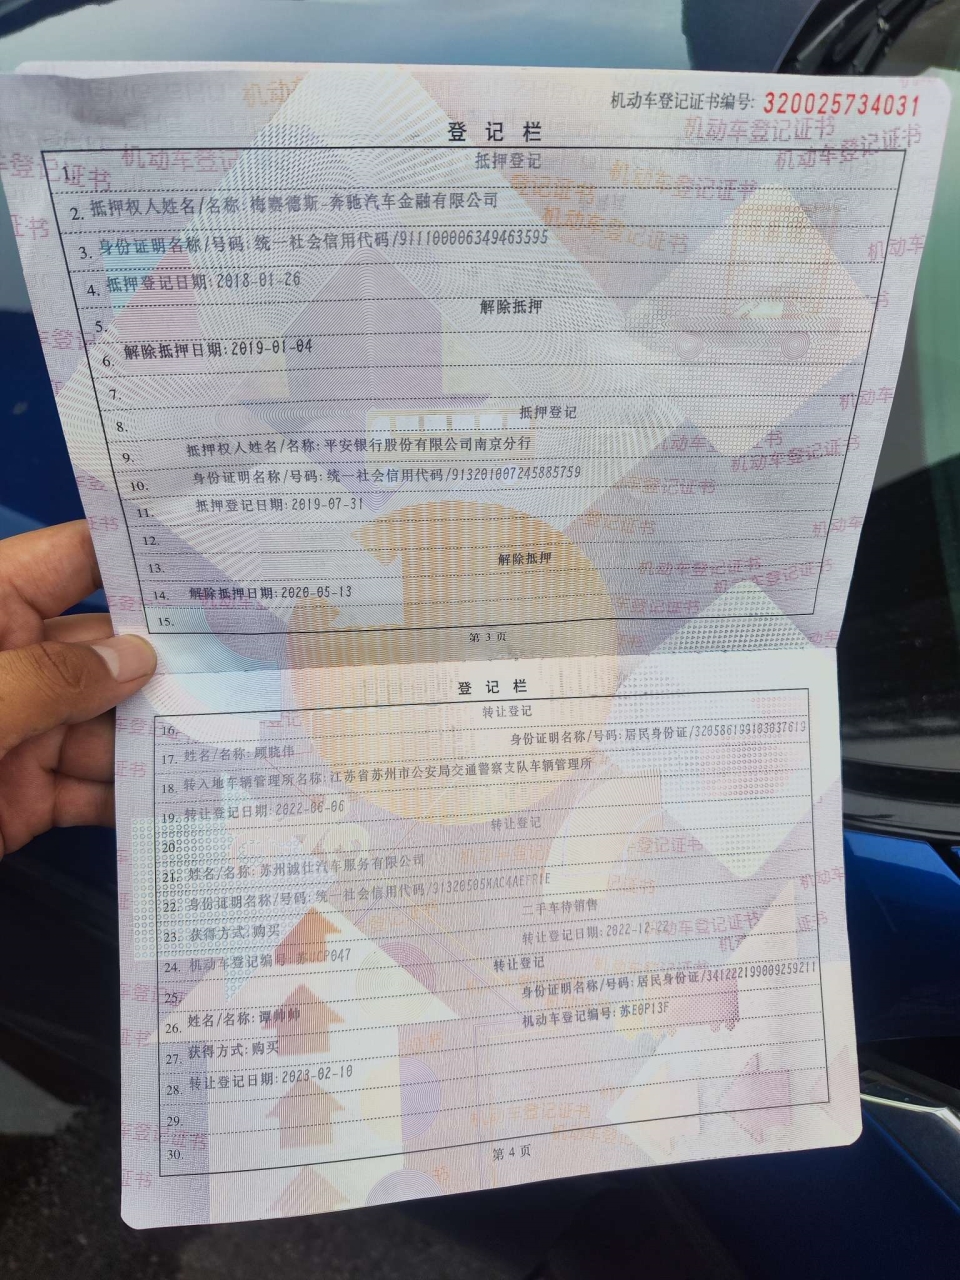 机动车登记证书编号: 320025734031
登记栏
1. 抵押登记
2. 抵押权人姓名/名称:梅赛德斯-奔驰汽车金融有限公司
3. 身份证明名称/号码:统一社会信用代码/911100006349463595
4. 抵押登记日期:2018-01-26
5. 解除抵押
6. 解除抵押日期:2019-01-04
7.
8. 抵押登记
9. 抵押权人姓名/名称:平安银行股份有限公司南京分行
10. 身份证明名称/号码:统一社会信用代码/913201007245885759
11. 抵押登记日期:2019-07-31
12.
13. 解除抵押
14. 解除抵押日期:2020-05-13
15.
第 3 页
登记栏
16. 转让登记
17. 姓名/名称:顾晓伟 身份证明名称/号码:居民身份证/320586199103037619
18. 转入地车辆管理所名称:江苏省苏州市公安局交通警察支队车辆管理所
19. 转让登记日期:2022-06-06
20. 转让登记
21. 姓名/名称:苏州诚仕汽车服务有限公司
22. 身份证明名称/号码:统一社会信用代码/91320505MAC4AEFR1E
23. 获得方式:购买 二手车待销售
24. 机动车登记编号 047 转让登记日期:2022-12-22
25. 转让登记
26. 姓名/名称:谭帅帅 身份证明名称/号码:居民身份证/341222199009259211
27. 获得方式:购买 机动车登记编号:苏E0P13F
28. 转让登记日期:2023-02-10
29.
30.
第 4 页